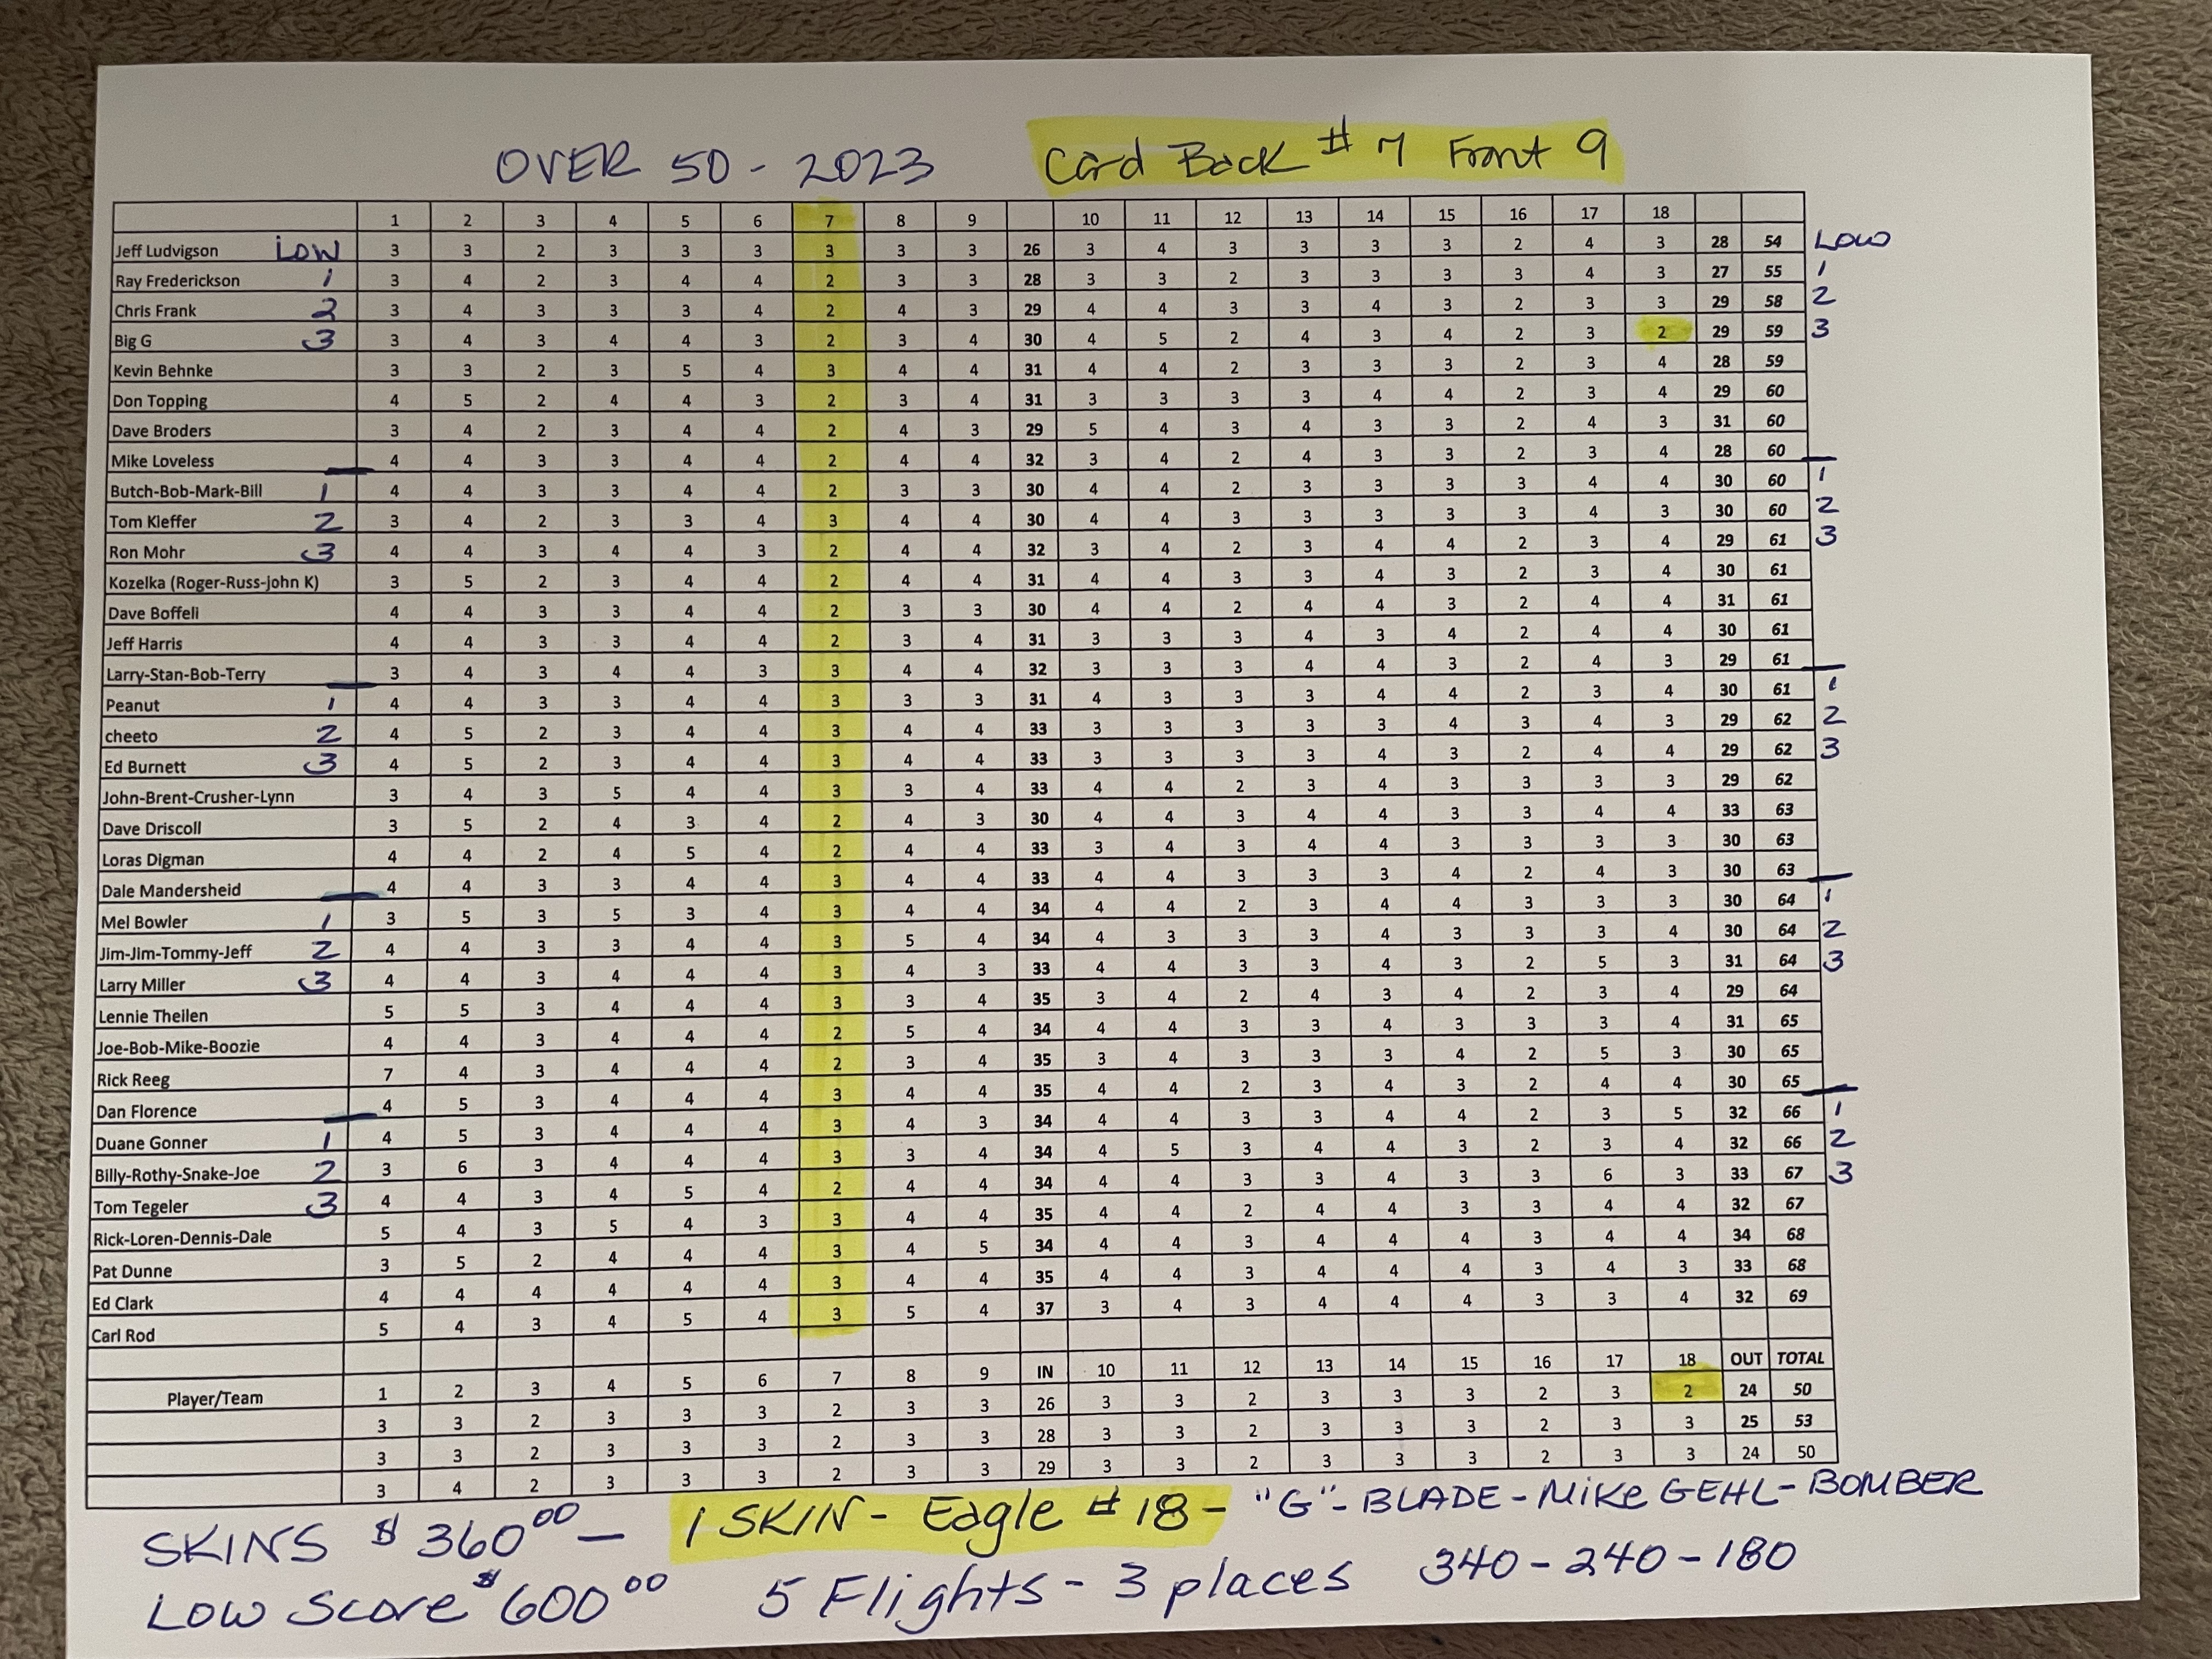 OVER 50 - 2023 Card Back # 7 Front 9
1 2 3 4 5 6 7 8 9 10 11 12 13 14 15 16 17 18
Jeff Ludvigson LOW 3 3 2 3 3 3 3 3 3 26 3 4 3 3 3 3 2 4 3 28 54 LOW
Ray Frederickson 1 3 4 2 3 4 4 2 3 3 28 3 3 2 3 3 3 3 4 3 27 55 1
Chris Frank 2 3 4 3 3 3 4 2 4 3 29 4 4 3 3 4 3 2 3 3 29 58 2
Big G 3 3 4 3 4 4 3 2 3 4 30 4 5 2 4 3 4 2 3 2 29 59 3
Kevin Behnke 3 3 2 3 5 4 3 4 4 31 4 4 2 3 3 3 2 3 4 28 59
Don Topping 4 5 2 4 4 3 2 3 4 31 3 3 3 3 4 4 2 3 4 29 60
Dave Broders 3 4 2 3 4 4 2 4 3 29 5 4 3 4 3 3 2 4 3 31 60
Mike Loveless 4 4 3 3 4 4 2 4 4 32 3 4 2 4 3 3 2 3 4 28 60
Butch-Bob-Mark-Bill 1 4 4 3 3 4 4 2 3 3 30 4 4 2 3 3 3 3 4 4 30 60 1
Tom Kleffer 2 3 4 2 3 3 4 3 4 4 30 4 4 3 3 3 3 3 4 3 30 60 2
Ron Mohr 3 4 4 3 4 4 3 2 4 4 32 3 4 2 3 4 4 2 3 4 29 61 3
Kozelka (Roger-Russ-john K) 3 5 2 3 4 4 2 4 4 31 4 4 3 3 4 3 2 3 4 30 61
Dave Boffeli 4 4 3 3 4 4 2 3 3 30 4 4 2 4 4 3 2 4 4 31 61
Jeff Harris 4 4 3 3 4 4 2 3 4 31 3 3 3 4 3 4 2 4 4 30 61
Larry-Stan-Bob-Terry 3 4 3 4 4 3 3 4 4 32 3 3 3 4 4 3 2 4 3 29 61
Peanut 1 4 4 3 3 4 4 3 3 3 31 4 3 3 3 4 4 2 3 4 30 61 1
cheeto 2 4 5 2 3 4 4 3 4 4 33 3 3 3 3 3 4 3 4 3 29 62 2
Ed Burnett 3 4 5 2 3 4 4 3 4 4 33 3 3 3 3 4 3 2 4 4 29 62 3
John-Brent-Crusher-Lynn 3 4 3 5 4 4 3 3 4 33 4 4 2 3 4 3 3 3 3 29 62
Dave Driscoll 3 5 2 4 3 4 2 4 3 30 4 4 3 4 4 3 3 4 4 33 63
Loras Digman 4 4 2 4 5 4 2 4 4 33 3 4 3 4 4 3 3 3 3 30 63
Dale Mandersheid 4 4 3 3 4 4 3 4 4 33 4 4 3 3 3 4 2 4 3 30 63
Mel Bowler 1 3 5 3 5 3 4 3 4 4 34 4 4 2 3 4 4 3 3 3 30 64 1
Jim-Jim-Tommy-Jeff 2 4 4 3 3 4 4 3 5 4 34 4 3 3 3 4 3 3 3 4 30 64 2
Larry Miller 3 4 4 3 4 4 4 3 4 3 33 4 4 3 3 4 3 2 5 3 31 64 3
Lennie Theilen 5 5 3 4 4 4 3 3 4 35 3 4 2 4 3 4 2 3 4 29 64
Joe-Bob-Mike-Boozie 4 4 3 4 4 4 2 5 4 34 4 4 3 3 4 3 3 3 4 31 65
Rick Reeg 7 4 3 4 4 4 2 3 4 35 3 4 3 3 3 4 2 5 3 30 65
Dan Florence 4 5 3 4 4 4 3 4 4 35 4 4 2 3 4 3 2 4 4 30 65
Duane Gonner 1 4 5 3 4 4 4 3 4 3 34 4 4 3 3 4 4 2 3 5 32 66 1
Billy-Rothy-Snake-Joe 2 3 6 3 4 4 4 3 3 4 34 4 5 3 4 4 3 2 3 4 32 66 2
Tom Tegeler 3 4 4 3 4 5 4 2 4 4 34 4 4 3 3 4 3 3 6 3 33 67 3
Rick-Loren-Dennis-Dale 5 4 3 5 4 3 3 4 4 35 4 4 2 4 4 3 3 4 4 32 67
Pat Dunne 3 5 2 4 4 4 3 4 5 34 4 4 3 4 4 4 3 4 4 34 68
Ed Clark 4 4 4 4 4 4 3 4 4 35 4 4 3 4 4 4 3 4 3 33 68
Carl Rod 5 4 3 4 5 4 3 5 4 37 3 4 3 4 4 4 3 3 4 32 69
Player/Team 1 2 3 4 5 6 7 8 9 IN 10 11 12 13 14 15 16 17 18 OUT TOTAL
3 3 2 3 3 3 2 3 3 26 3 3 2 3 3 3 2 3 2 24 50
3 3 2 3 3 3 2 3 3 28 3 3 2 3 3 3 2 3 3 25 53
3 4 2 3 3 3 2 3 3 29 3 3 2 3 3 3 2 3 3 24 50
SKINS $ 360⁰⁰ — 1 SKIN - Eagle # 18 - "G" - BLADE - MiKe GEHL - BOMBER
LOW Score $600⁰⁰ 5 Flights - 3 places 340 - 240 - 180